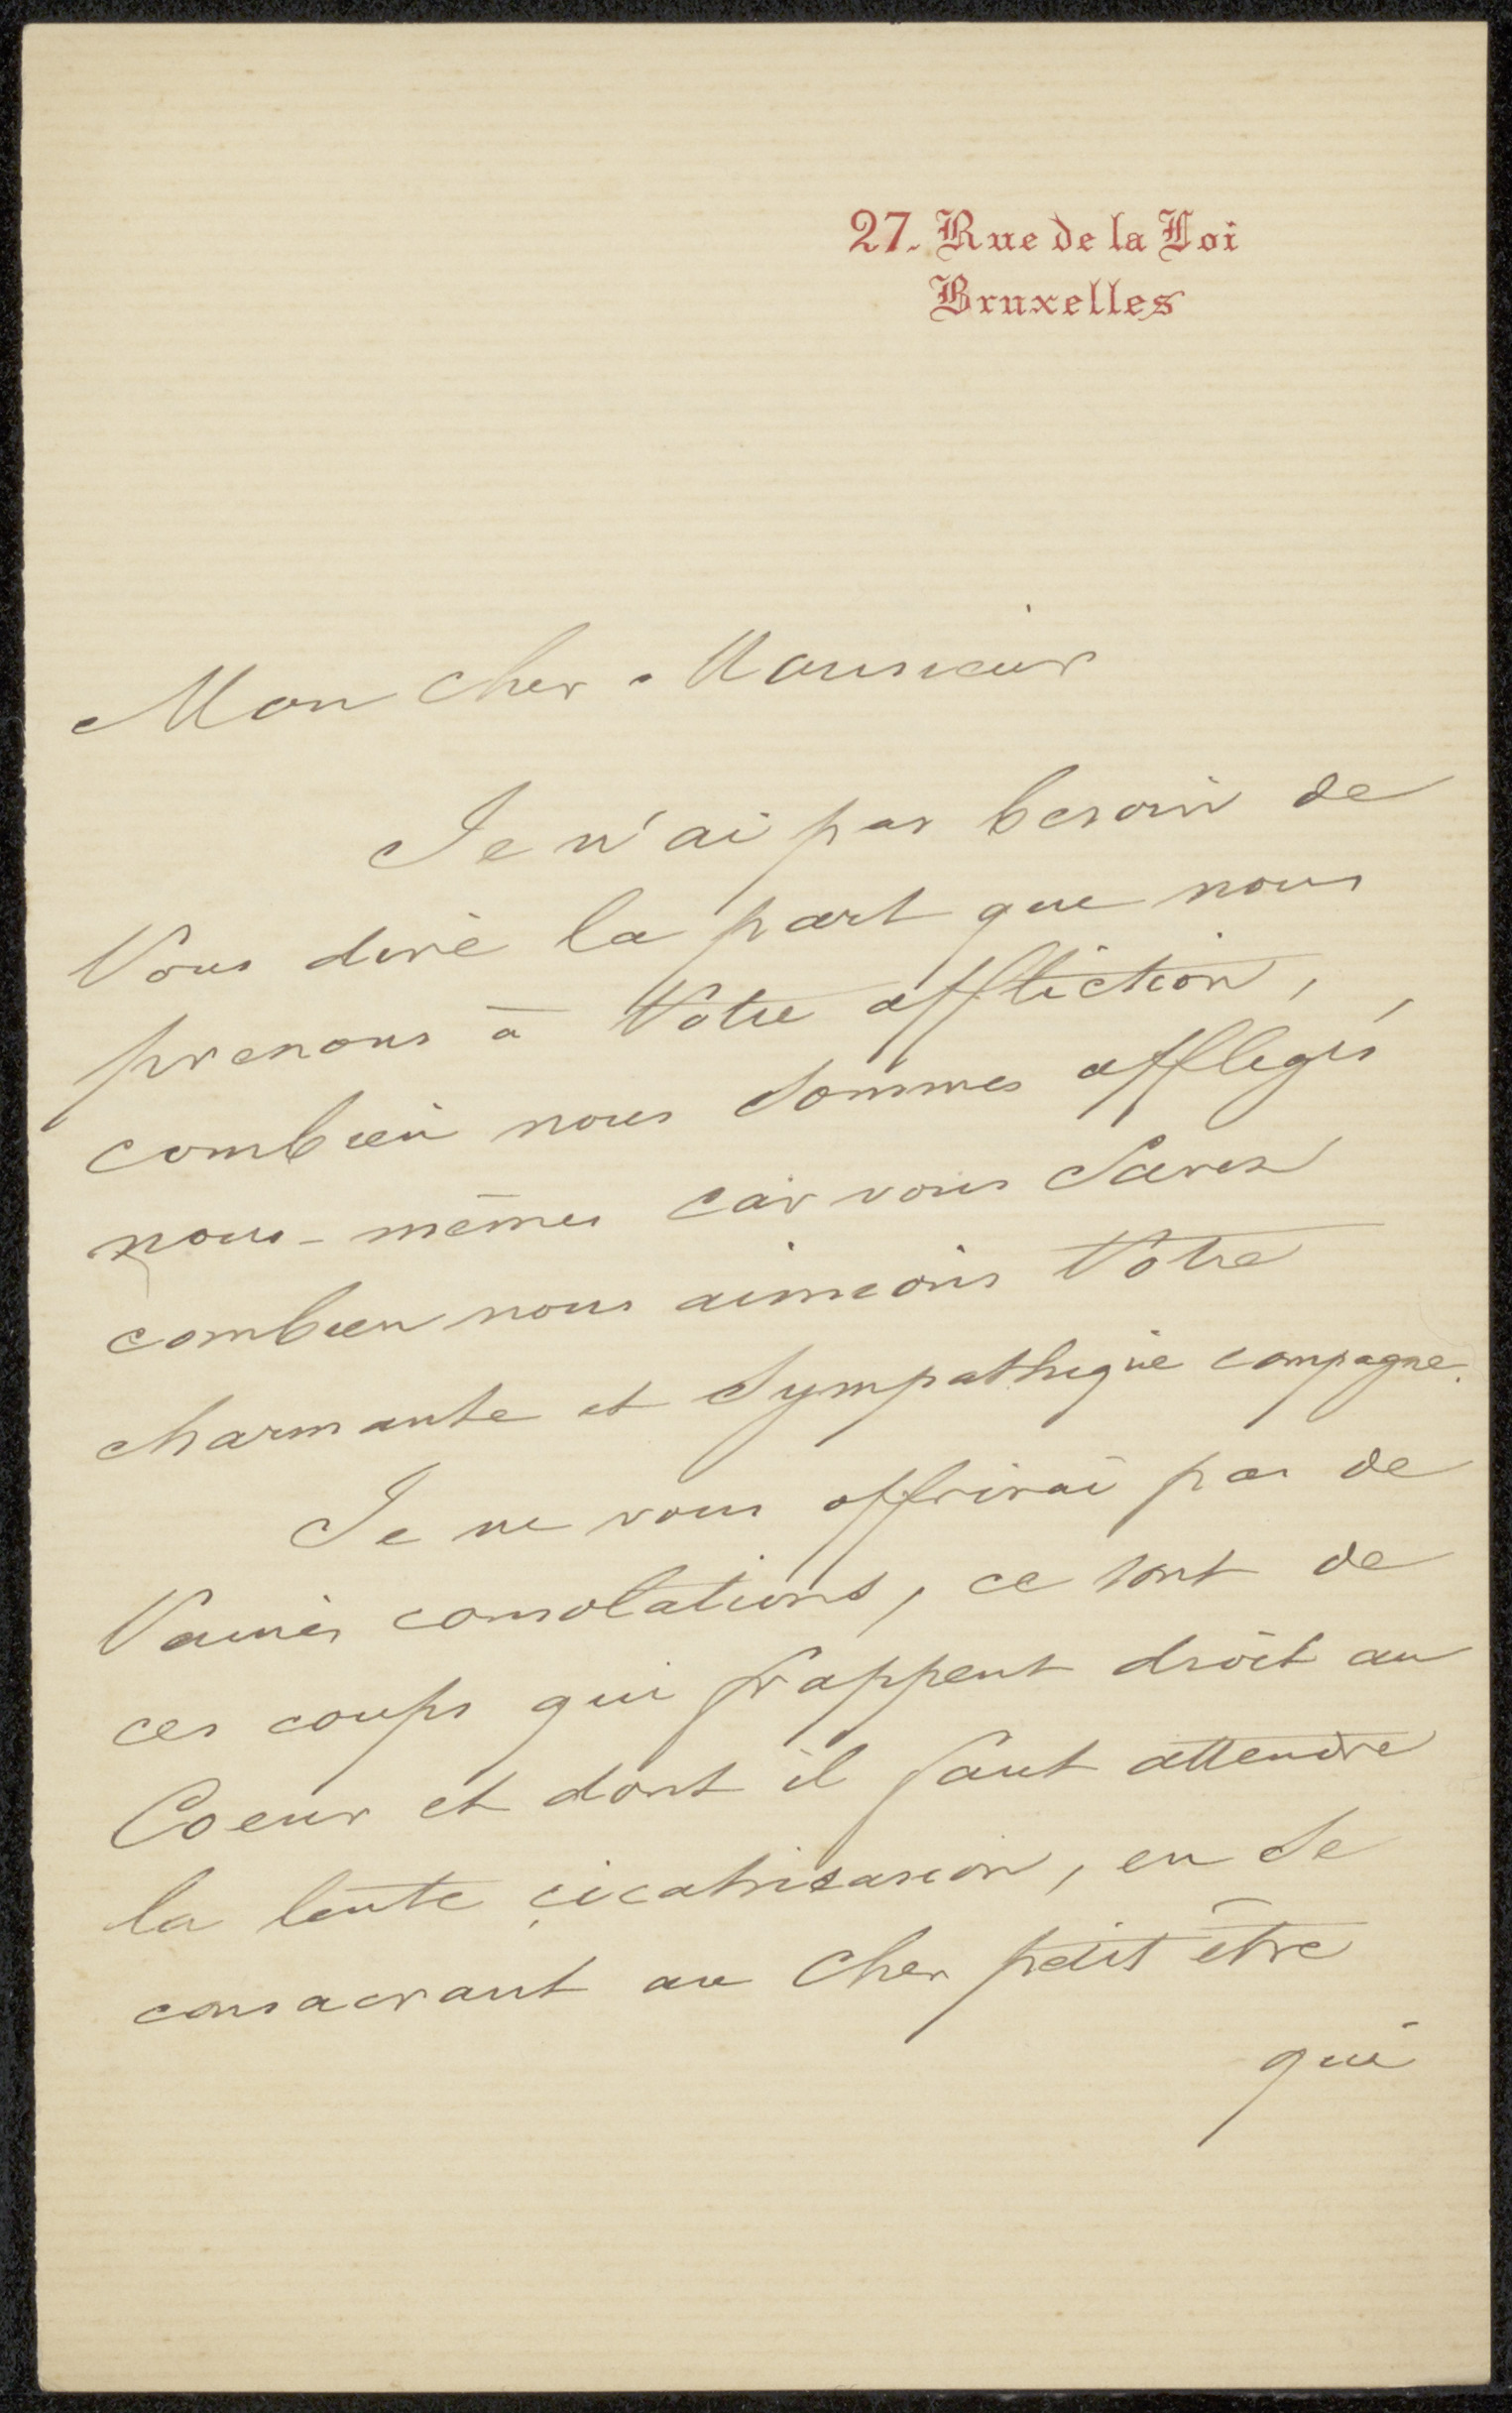 27. Rue de la Loi
Bruxelles
Mon cher Monsieur
Je n'ai pas besoin de
Vous dire la part que nous
prenons à Votre affliction,
combien nous sommes affligés
nous-mêmes car vous savez
combien nous aimions Votre
charmante et sympathique compagne.
Je ne vous offrirai pas de
Vaines consolations, ce sont de
ces coups qui frappent droit au
Coeur et dont il faut attendre
la lente cicatrisasion, en se
consacrant au cher petit être
qui